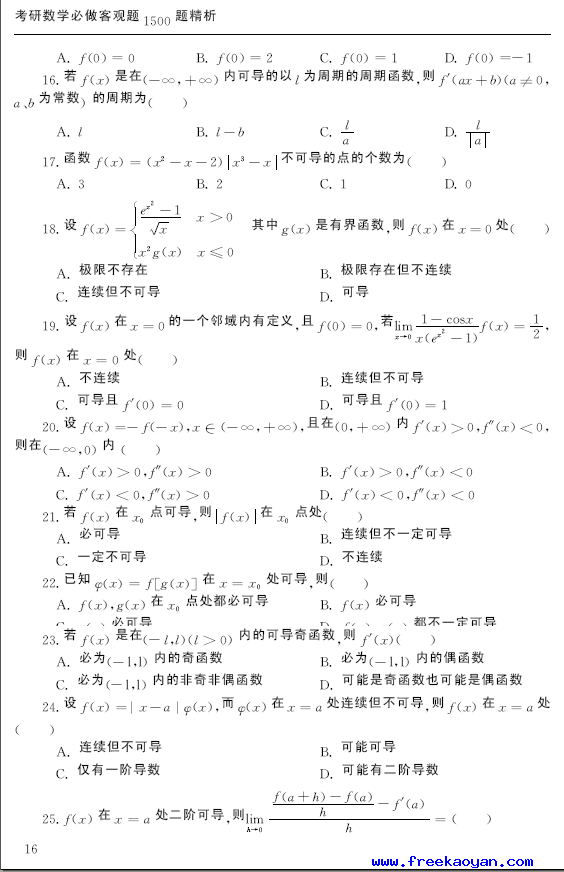 考研数学必做客观题1500题精析
A. f(0)=0 B. f(0)=2 C. f(0)=1 D. f(0)=-1
16. 若 f(x) 是在(-∞,+∞) 内可导的以 l 为周期的周期函数,则 f′(ax+b)(a≠0,
a、b 为常数) 的周期为( )
A. l B. l-b C. l/a D. l/|a|
17. 函数 f(x)=(x²-x-2)|x³-x| 不可导的点的个数为( )
A. 3 B. 2 C. 1 D. 0
18. 设 f(x)={ (e^{x²}-1)/√x x>0 ; x²g(x) x≤0 其中 g(x) 是有界函数,则 f(x) 在 x=0 处( )
A. 极限不存在 B. 极限存在但不连续
C. 连续但不可导 D. 可导
19. 设 f(x) 在 x=0 的一个邻域内有定义,且 f(0)=0,若 lim_{x→0} (1-cosx)/(x(e^{x²}-1)) f(x)=1/2,
则 f(x) 在 x=0 处( )
A. 不连续 B. 连续但不可导
C. 可导且 f′(0)=0 D. 可导且 f′(0)=1
20. 设 f(x)=-f(-x),x∈(-∞,+∞),且在(0,+∞) 内 f′(x)>0,f″(x)<0,
则在(-∞,0) 内 ( )
A. f′(x)>0,f″(x)>0 B. f′(x)>0,f″(x)<0
C. f′(x)<0,f″(x)>0 D. f′(x)<0,f″(x)<0
21. 若 f(x) 在 x₀ 点可导,则|f(x)| 在 x₀ 点处( )
A. 必可导 B. 连续但不一定可导
C. 一定不可导 D. 不连续
22. 已知 φ(x)=f[g(x)] 在 x=x₀ 处可导,则( )
A. f(x),g(x) 在 x₀ 点处都必可导 B. f(x) 必可导
必可导 都不一定可导
23. 若 f(x) 是在(-l,l)(l>0) 内的可导奇函数,则 f′(x)( )
A. 必为(-1,1) 内的奇函数 B. 必为(-1,1) 内的偶函数
C. 必为(-1,1) 内的非奇非偶函数 D. 可能是奇函数也可能是偶函数
24. 设 f(x)=|x-a|φ(x),而 φ(x) 在 x=a 处连续但不可导,则 f(x) 在 x=a 处
( )
A. 连续但不可导 B. 可能可导
C. 仅有一阶导数 D. 可能有二阶导数
25. f(x) 在 x=a 处二阶可导,则 lim_{h→0} ((f(a+h)-f(a))/h-f′(a))/h=( )
16
www.freekaoyan.com